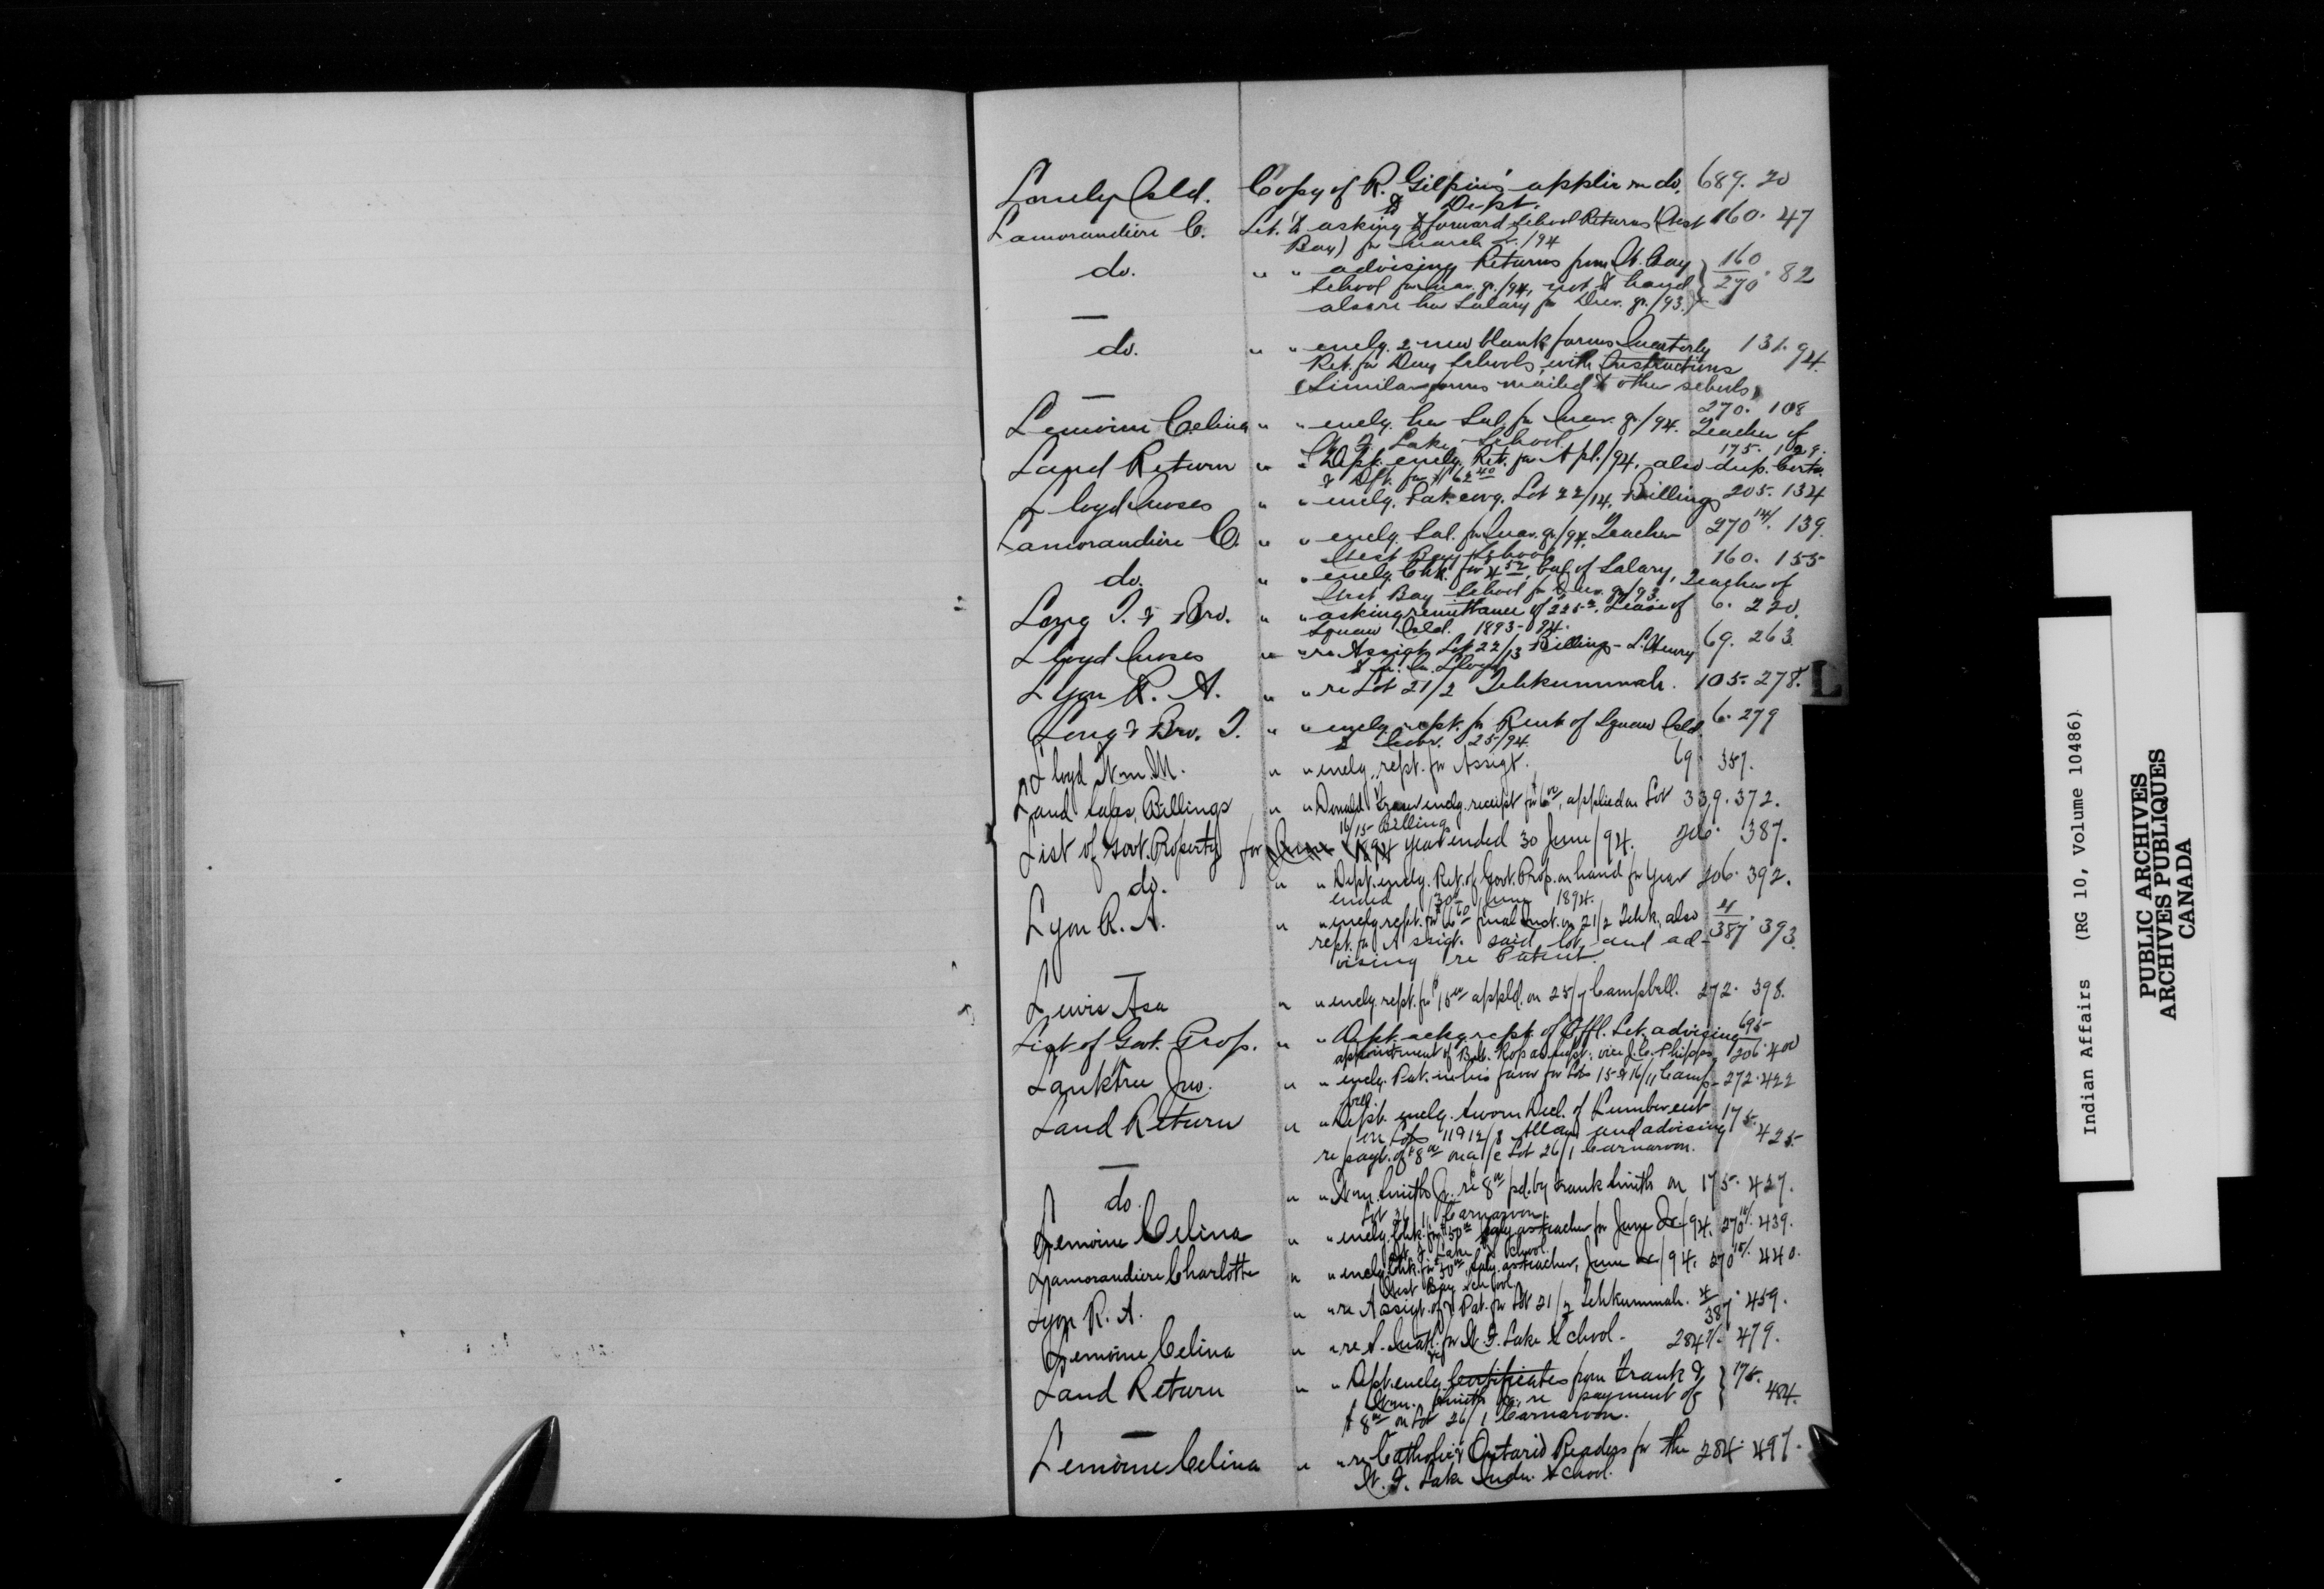 Lonely Isld. Copy of R. Gilpin's applic on do. 689. 20
to Dept.
Lamorandiere C. Let. to asking to forward School Returns (West 160. 47
Bay) for March qr./94
do. " " advising Returns from W. Bay 160
School for Mar. qr./94, not to hand 270. 82
also re her Salary for Dec. qr./93.
do. " " enclg. 2 new blank forms Quarterly 131. 94.
Ret. for Day Schools, with Instructions
(Similar forms mailed to other schools)
270. 108
Lemoine Celina " " enclg. her Sal. for Mar. qr./94. Teacher of
Lake School.
175. 129.
Land Return " " Dept. enclg. Ret. for Apl./94. also dup. Certs.
& Dft. for $ 62 40
Lloyd Moses " " enclg. Pat. covg. Lot 22/14, Billings 205. 134
Lamorandiere C. " " enclg. Sal. for Mar. qr/94, Teacher 270 14/. 139.
West Bay School
160. 155
do. " " enclg. Chk. for 4 52, bal. of Salary, Teacher of
West Bay School for Dec. qr/93.
Long T. & Bro. " " asking remittance of 225 00. Lease of 6. 220.
Squaw Isld. 1893-94.
Lloyd Moses " " re Assigt. Lot 22/13 Billings - L. Henry 69. 263.
to M. Lloyd
Lyon R. A. " " re Lot 21/2 Tehkummah. 105. 278.
L
Long & Bro. T. " " enclg. rcpt. for Rent of Squaw Isld. 6. 279
to Novr. 25/94.
Lloyd Wm. M. " " enclg. rcpt. for Assigt. 69. 357.
Land sales, Billings " " Donald enclg. receipt for 6 00, applied on Lot 339. 372.
16/15 Billings
List of Govt. Property for June 1894 year ended 30 June/94. 206. 387.
do. " " Dept. enclg. Ret. of Govt. Prop. on hand for Year 206. 392.
ended 30th June 1894.
Lyon R. A. " " enclg. rcpt. for final Inst. on 21/2 Tehk., also 4
rcpt. for Assigt. said lot and ad- 387. 393.
vising re Patent.
Lewis Asa " " enclg. rcpt. for $15 00 appld. on 25/7 Campbell. 272. 398.
List of Govt. Prop. " " Dept. ackg. rcpt. of Offl. Let. advising 695
appointment of B. Ross as Supt. vice J. C. Phipps 206. 400
Lanktree Jno. " " enclg. Pat. in his favor for Lots 15 & 16/11 Camp- 272. 422
bell.
Land Return " " Dept. enclg. sworn Decl. of Lumber cut 175.
on Lots 11 & 12/8 Allan and advising 425.
re payt. of $8 00 on a/c Lot 26/1 Carnarvon.
do. " " Wm. Smith Jr. re 8 00 pd. by Frank Smith on 175. 427.
Lot 26/1 Carnarvon.
Lemoine Celina " " enclg. Chk. for $50 00 Saly. as teacher for June Qr/94. 270 16/. 439.
Lake School.
Lamorandiere Charlotte " " enclg. Chk. for 50 00 Saly. as teacher, June qr/94. 270 15/. 440.
West Bay School
Lyon R. A. " " re Assigt. of & Pat. for Lot 21/2 Tehkummah. 4/387. 459.
Lemoine Celina " " re S. Matl. for W. F. Lake School. 284 2/. 479.
Land Return " " Dept. enclg. Certificates from Frank & 175.
Wm. Smith Jr. re payment of 484.
$ 8 00 on Lot 26/1 Carnarvon.
Lemoine Celina " " re Catholic Ontario Readers for the 284. 497.
W. F. Lake Indn. School.
Indian Affairs (RG 10, Volume 10486)
PUBLIC ARCHIVES
ARCHIVES PUBLIQUES
CANADA